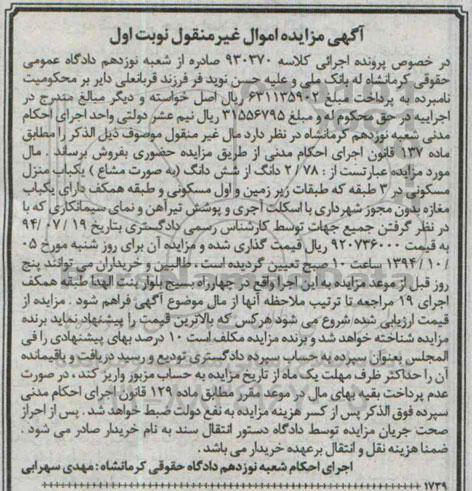 آگهی مزایده اموال غیر منقول نوبت اول
در خصوص پرونده اجرائی کلاسه ۹۳۰۳۷۰ صادره از شعبه نوزدهم دادگاه عمومی
حقوقی کرمانشاه له بانک ملی و علیه حسن نوید فر فرزند قربانعلی دایر بر محکومیت
نامبرده به پرداخت مبلغ ۶۳۱۱۳۵۹۰۲ ریال اصل خواسته و دیگر مبالغ مندرج در
اجراییه در حق محکوم له و مبلغ ۳۱۵۵۶۷۹۵ ریال نیم عشر دولتی واحد اجرای احکام
مدنی شعبه نوزدهم کرمانشاه در نظر دارد مال غیر منقول موصوف ذیل الذکر را مطابق
ماده ۱۳۷ قانون اجرای احکام مدنی از طریق مزایده حضوری بفروش برساند . مال
مورد مزایده عبارتست از : ۲/۷۸ دانگ از شش دانگ (به صورت مشاع ) یکباب منزل
مسکونی در ۳ طبقه که طبقات زیر زمین و اول مسکونی و طبقه همکف دارای یکباب
مغازه بدون مجوز شهرداری با اسکلت آجری و پوشش تیرآهن و نمای سیمانکاری که با
در نظر گرفتن جمیع جهات توسط کارشناس رسمی دادگستری بتاریخ ۹۴/۰۷/۱۹
به قیمت ۹۲۰۷۳۶۰۰۰ ریال قیمت گذاری شده و مزایده آن برای روز شنبه مورخ ۰۵
/۱۳۹۴/۱۰ ساعت ۱۰ صبح تعیین گردیده است . طالبین و خریداران می توانند پنج
روز قبل از موعد مزایده به این اجرا واقع در چهارراه بسیج بلوار بنت الهدا طبقه همکف
اجرای ۱۹ مراجعه تا ترتیب ملاحظه آنها از مال موضوع آگهی فراهم شود . مزایده از
قیمت ارزیابی شده شروع می شود هر کس که بالاترین قیمت را پیشنهاد نماید برنده
مزایده شناخته خواهد شد و برنده مزایده مکلف است ۱۰ درصد بهای پیشنهادی را فی
المجلس بعنوان سپرده به حساب سپرده دادگستری تودیع و رسید دریافت و باقیمانده
آن را حداکثر ظرف مهلت یک ماه از تاریخ مزایده به حساب مزبور واریز کند ، در صورت
عدم پرداخت بقیه بهای مال در موعد مقرر مطابق ماده ۱۲۹ قانون اجرای احکام مدنی
سپرده فوق الذکر پس از کسر هزینه مزایده به نفع دولت ضبط خواهد شد . پس از احراز
صحت جریان مزایده توسط دادگاه دستور انتقال سند به نام خریدار صادر می شود .
ضمنا هزینه نقل و انتقال بر عهده خریدار می باشد .
اجرای احکام شعبه نوزدهم دادگاه حقوقی کرمانشاه : مهدی سهرابی
۱۷۳۹